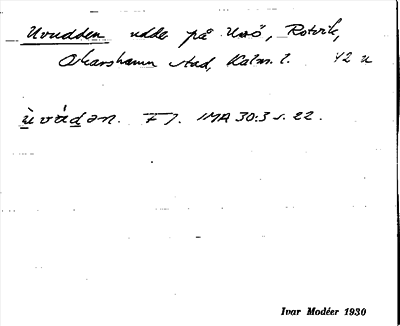 Uvudden udde på Uvö, Rotvik,
Oskarshamn stad, Kalm. l. 42 u
ùvádən. F7. IMA 30:3 s. 22.
Ivar Modéer 1930